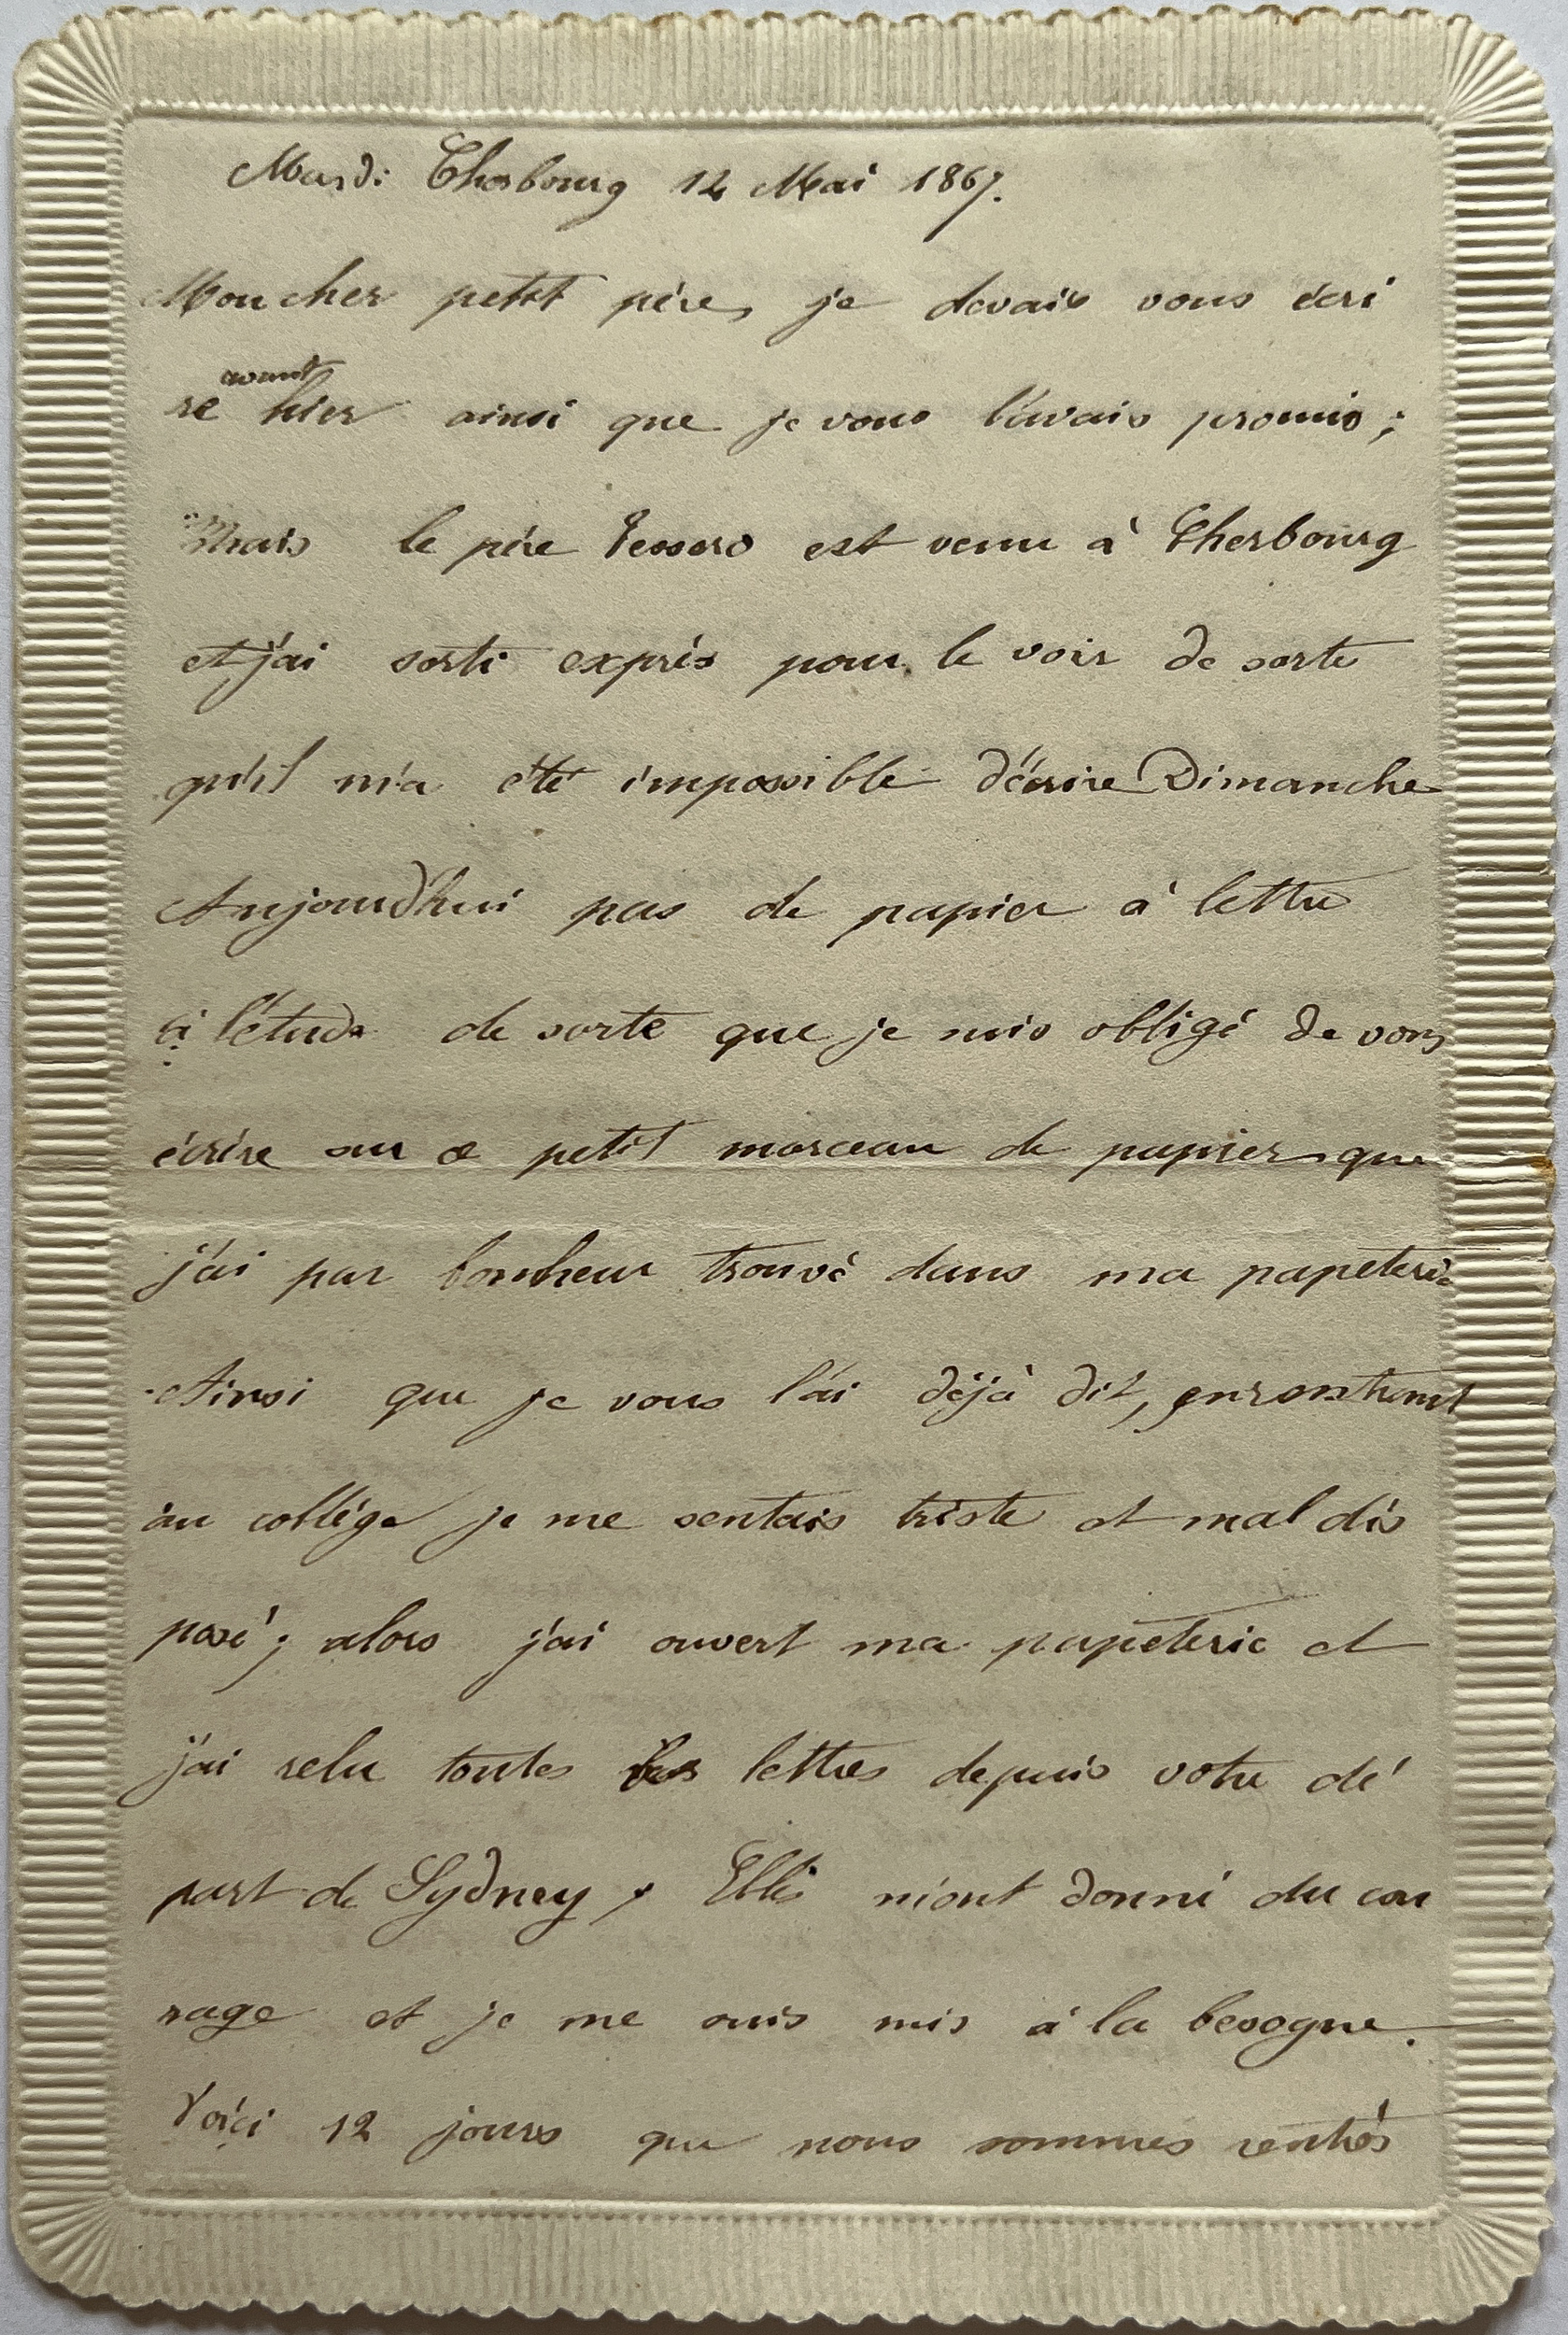 Mardi Cherbourg 12 Mai 1867.
Mon cher petit père, je devais vous écri
avant
re hier ainsi que je vous l'avais promis ;
Mais le père est venu à Cherbourg
et j'ai sorti exprès pour le voir de sorte
qu'il m'a été impossible d'écrire Dimanche
Aujourd'hui pas de papier à lettre
à l'étude de sorte que je suis obligé de vous
écrire sur ce petit morceau de papier que
j'ai par bonheur trouvé dans ma papeterie
Ainsi que je vous l'ai déjà dit, en rentrant
au collége je me sentais triste et mal dis
posé ; alors j'ai ouvert ma papeterie et
j'ai relu toutes les lettres depuis votre dé
part de Sydney ; Elles m'ont donné du cou
rage et je me suis mis à la besogne.
Voici 12 jours que nous sommes rentrés